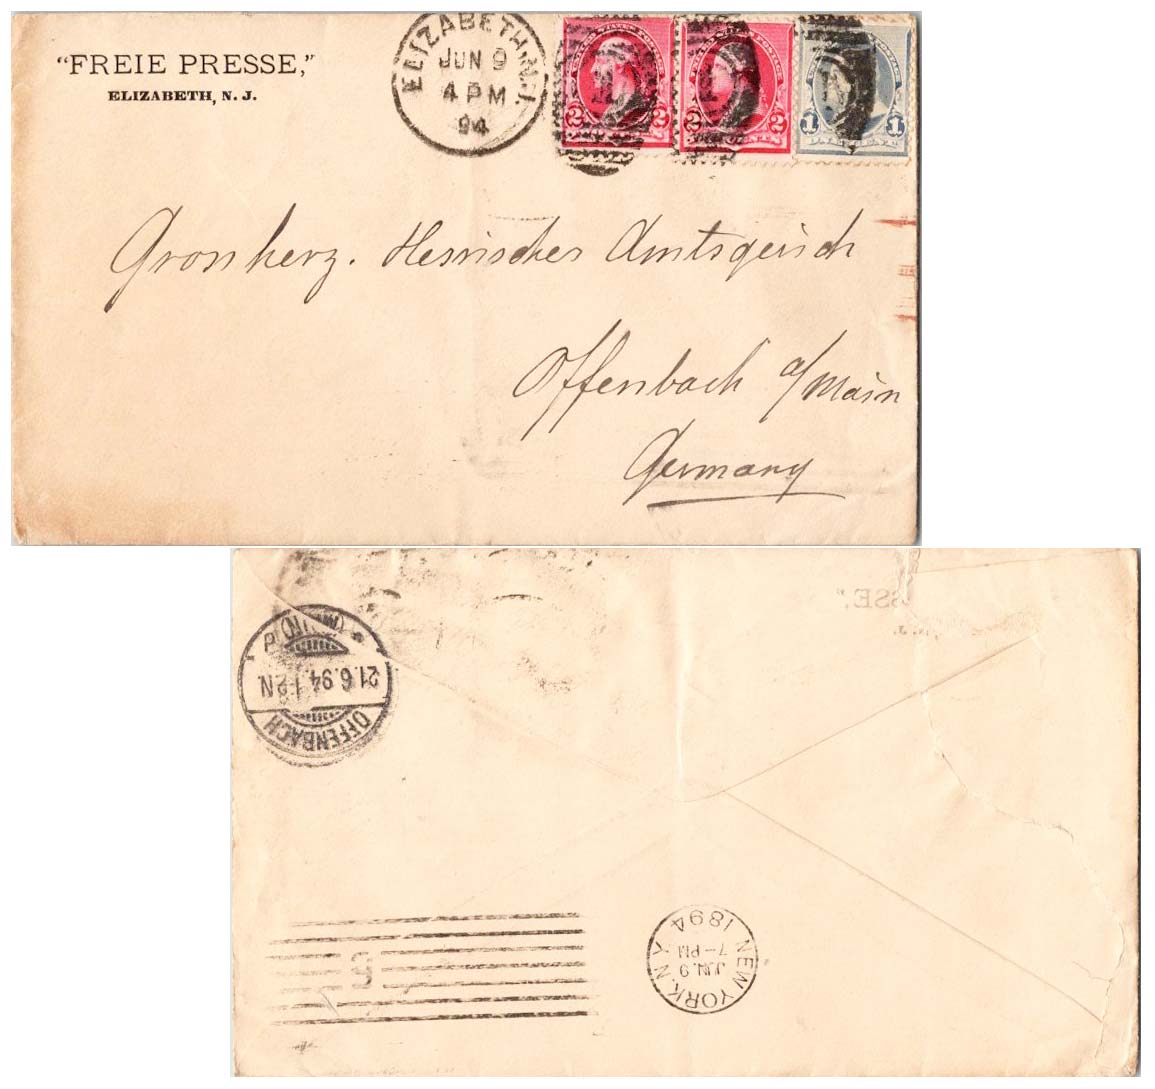 "FREIE PRESSE,"
ELIZABETH, N. J.
ELIZABETH, N.J.
JUN 9
4 PM
94
2 2
2 2
1 1
Grossherz. Hessisches Amtsgerich
Offenbach a/Main
Germany
OFFENBACH
21.6.94.1-2N
NEW YORK, N.Y.
JUN. 9
7-PM
1894